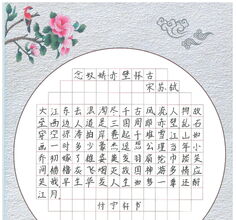 念奴娇赤壁怀古
宋苏轼
大江东去浪淘尽千古风流人物故
垒西边人道是三国周郎赤壁乱石
穿空惊涛拍岸卷起千堆雪江山如
画一时多少豪杰遥想公瑾当年小
乔初嫁了雄姿英发羽扇纶巾谈笑
间樯橹灰飞烟灭故国神游多情应
笑我早生华发人生如梦一尊还酹
江月